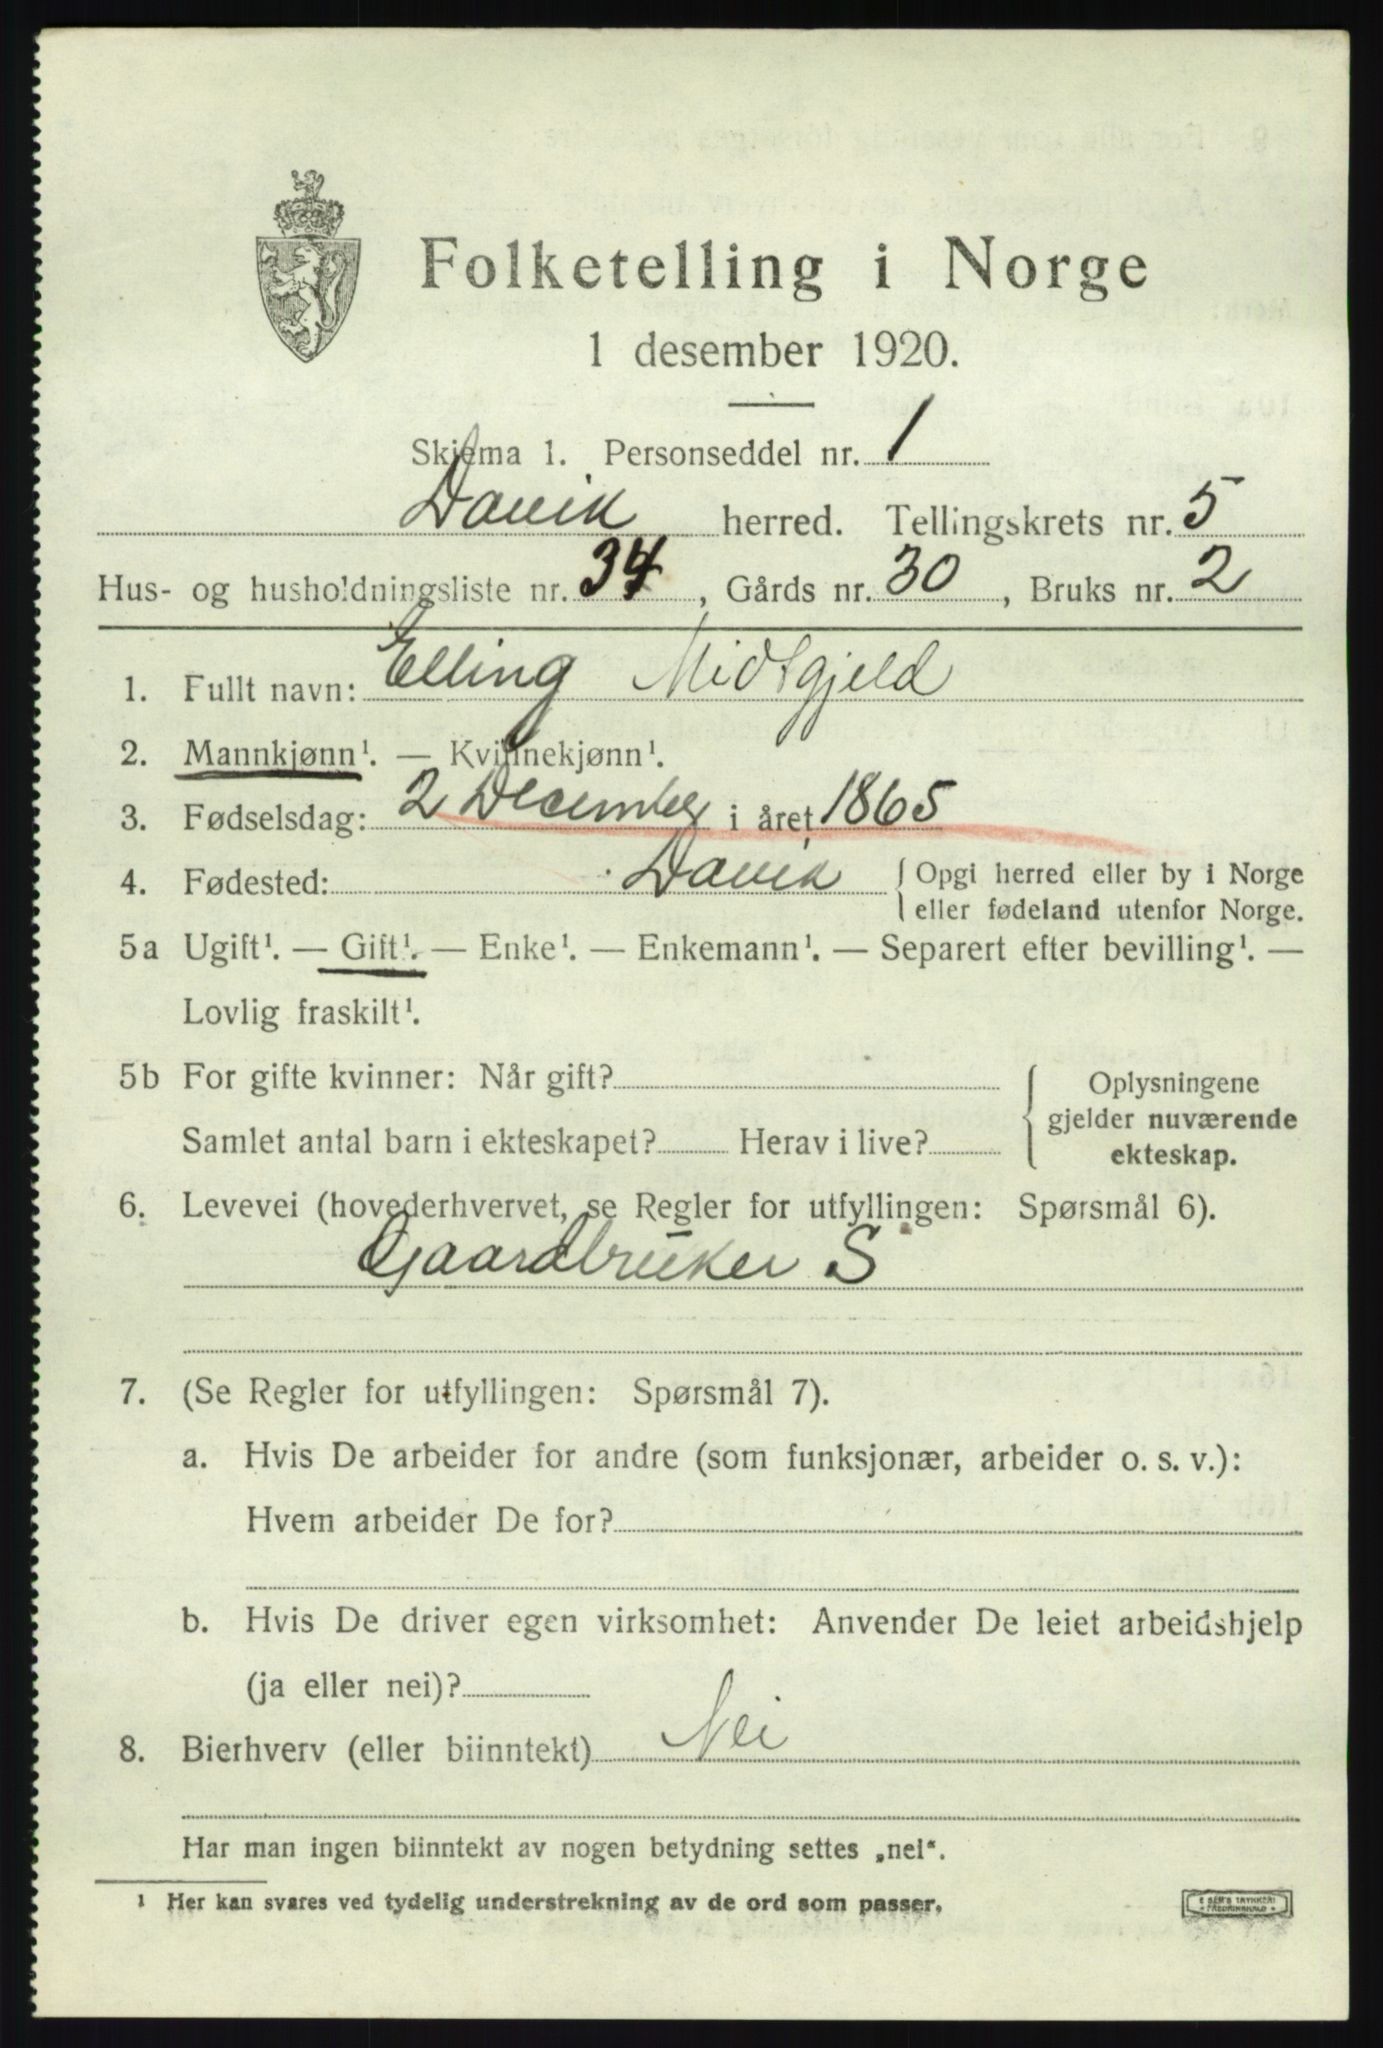 Folketelling i Norge
1 desember 1920.
Skjema 1. Personseddel nr. 1
Davik herred. Tellingskrets nr. 5
Hus- og husholdningsliste nr. 34, Gårds nr. 30, Bruks nr. 2
1. Fullt navn: Elling Midtgjeld
2. Mannkjønn¹. — Kvinnekjønn¹.
3. Fødselsdag: 2 December i året 1865
4. Fødested: Davik { Opgi herred eller by i Norge
eller fødeland utenfor Norge.
5a Ugift¹. — Gift¹. — Enke¹. — Enkemann¹. — Separert efter bevilling¹. —
Lovlig fraskilt¹.
5b For gifte kvinner: Når gift?
Samlet antal barn i ekteskapet? Herav i live?
{ Oplysningene
gjelder nuværende
ekteskap.
6. Levevei (hovederhvervet, se Regler for utfyllingen: Spørsmål 6).
Gaardbruker S
7. (Se Regler for utfyllingen: Spørsmål 7).
a. Hvis De arbeider for andre (som funksjonær, arbeider o. s. v.):
Hvem arbeider De for?
b. Hvis De driver egen virksomhet: Anvender De leiet arbeidshjelp
(ja eller nei)?
8. Bierhverv (eller biinntekt) Nei
Har man ingen biinntekt av nogen betydning settes „nei“.
¹ Her kan svares ved tydelig understrekning av de ord som passer.